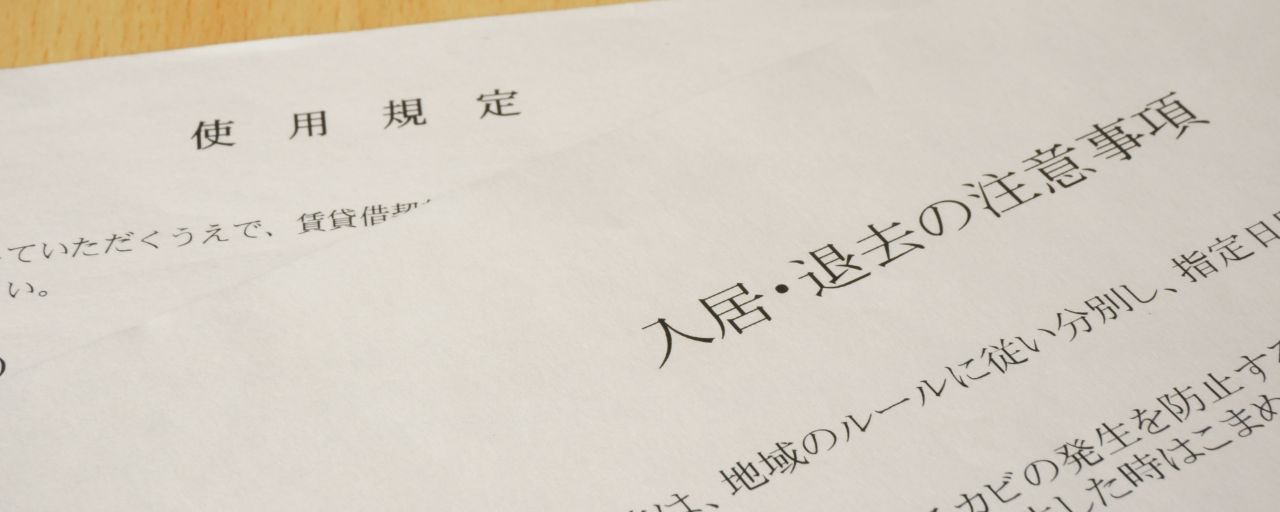 使用規定
ていただくうえで、賃貸借契
い。
入居・退去の注意事項
は、地域のルールに従い分別し、指定日
カビの発生を防止す
した時はこまめ